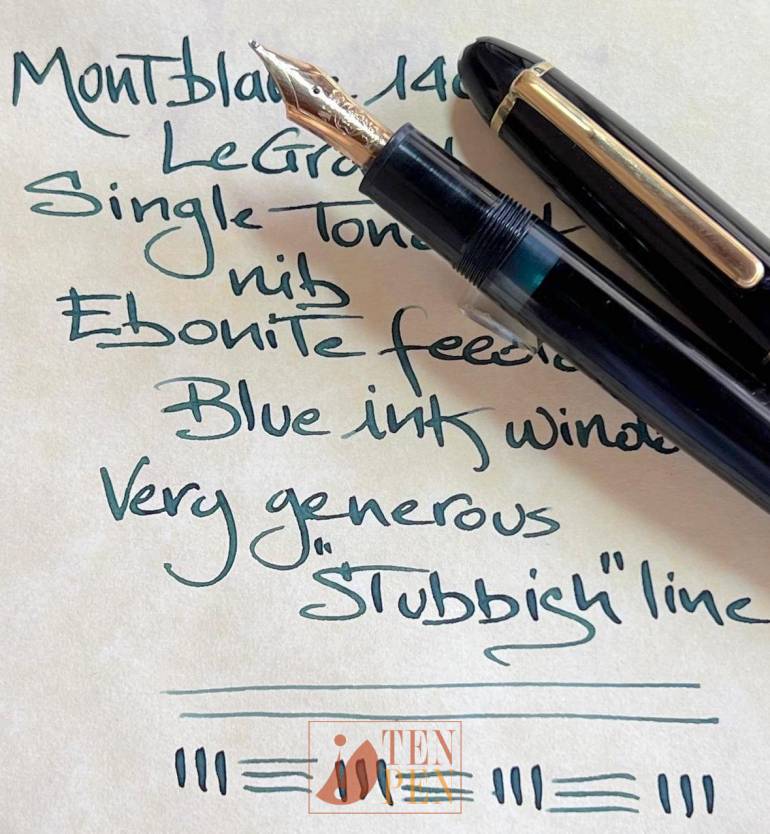 Montblanc: 146
LeGrand
Single Tone
nib
Ebonite
Blue ink window
Very generous
"Stubbish" line
TEN
PEN